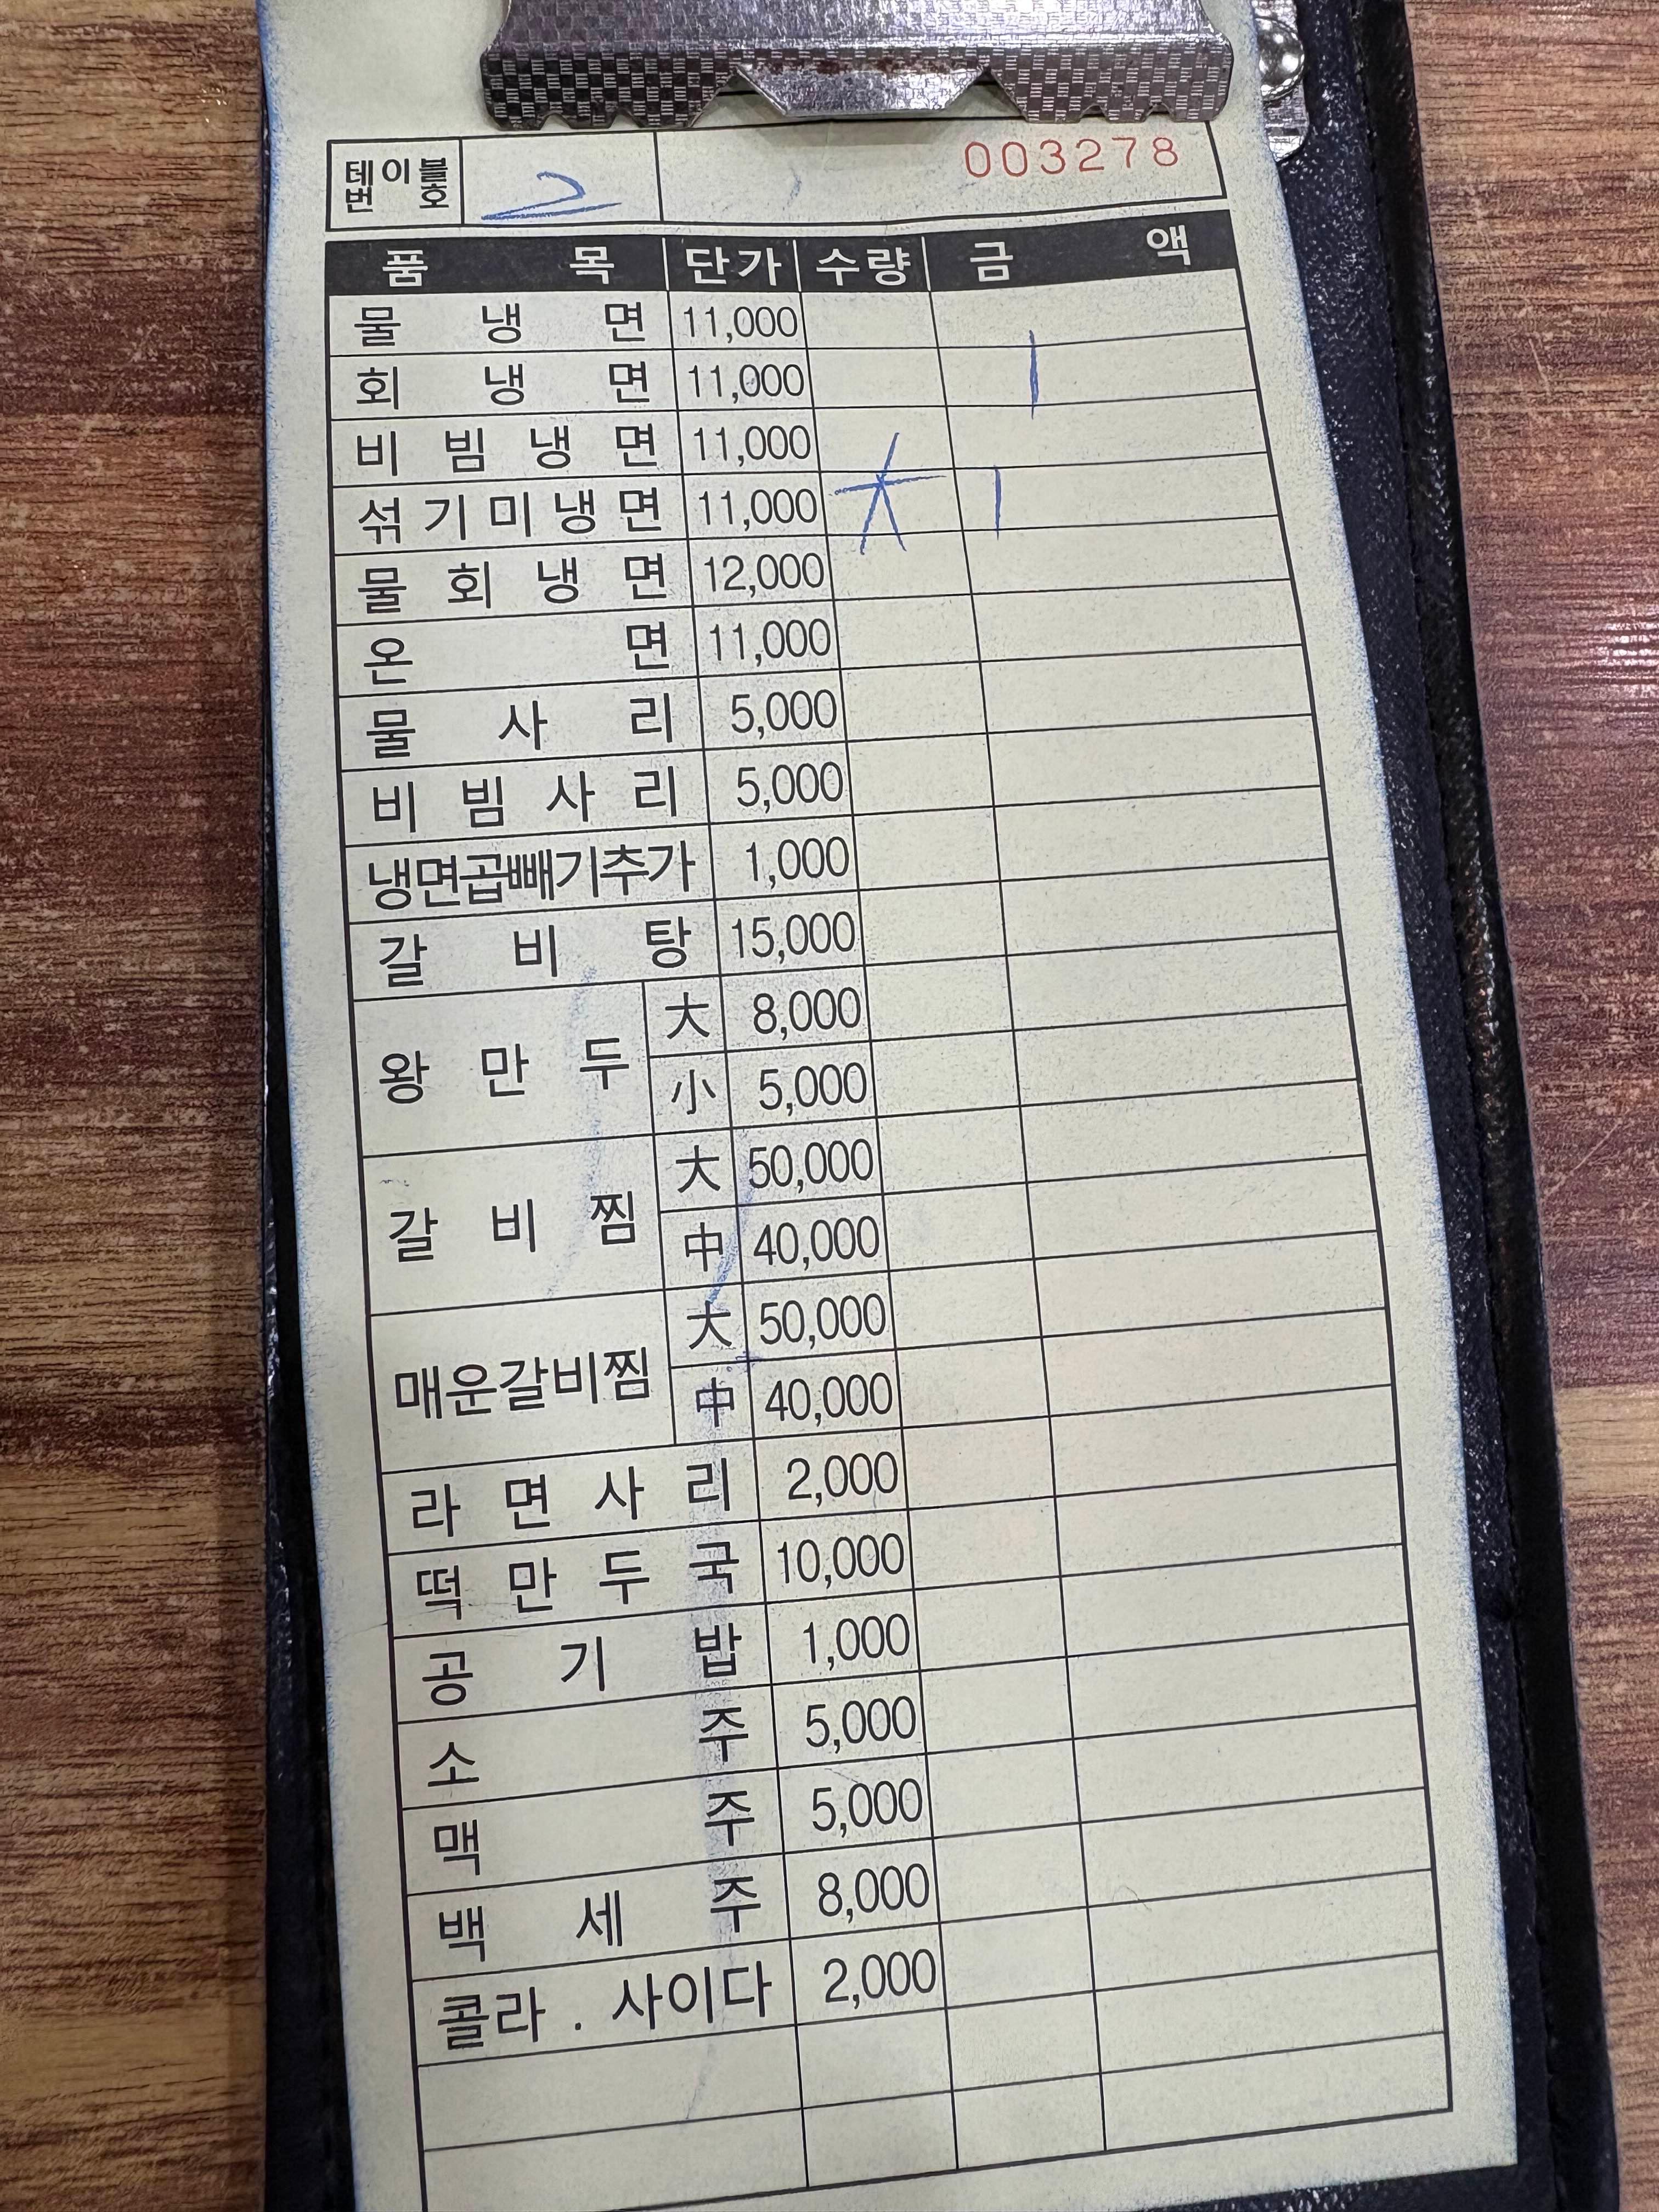 테이블 번호 2 003278
품목 단가 수량 금액
물냉면 11,000
회냉면 11,000 1
비빔냉면 11,000
섞기미냉면 11,000 大 1
물회냉면 12,000
온면 11,000
물사리 5,000
비빔사리 5,000
냉면곱빼기추가 1,000
갈비탕 15,000
왕만두 大 8,000
小 5,000
갈비찜 大 50,000
中 40,000
매운갈비찜 大 50,000
中 40,000
라면사리 2,000
떡만두국 10,000
공기밥 1,000
소주 5,000
맥주 5,000
백세주 8,000
콜라 . 사이다 2,000